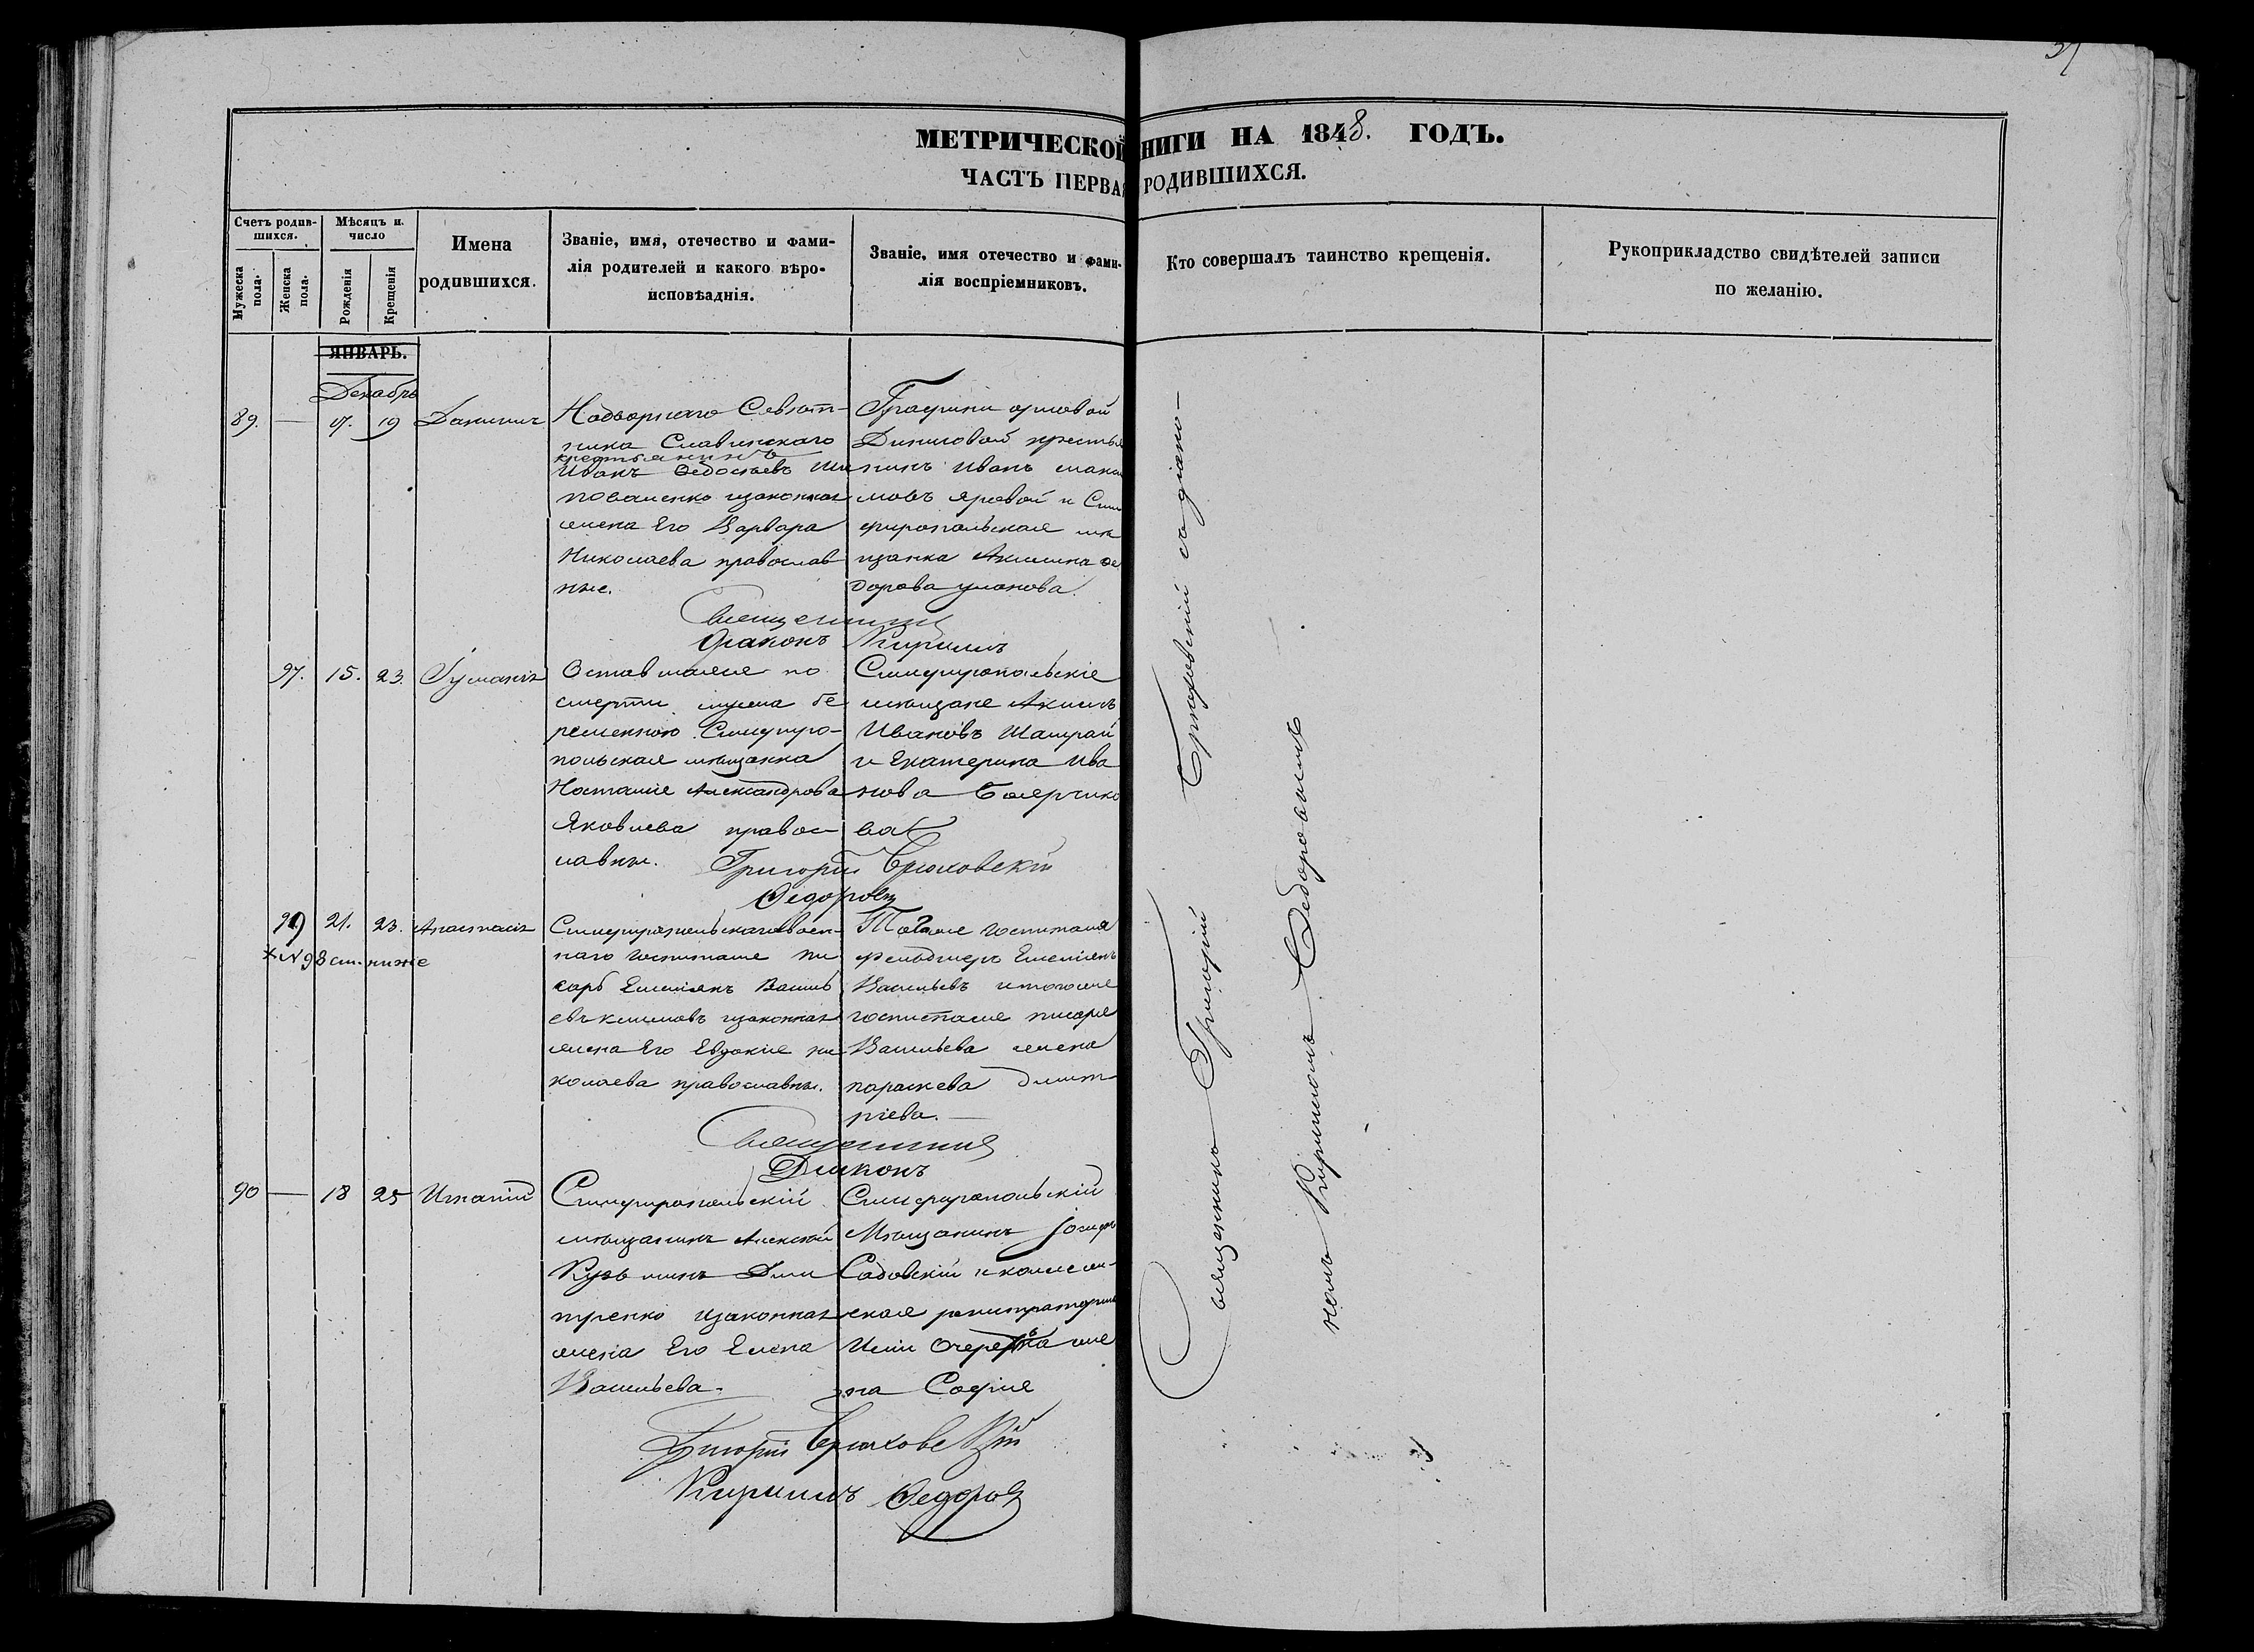 МЕТРИЧЕСКОЙ НИГИ НА 1848. ГОДЪ.
ЧАСТЬ ПЕРВАЯ РОДИВШИХСЯ.
Счетъ родив-
шихся.
Мужеска
пола.
Женска
пола.
Мѣсяцъ и.
число
Рожденія
Крещенія
Имена
родившихся.
Званіе, имя, отечество и фами-
лія родителей и какого вѣро-
исповѣаднія.
Званіе, имя отечество и фами-
лія воспріемниковъ.
Кто совершалъ таинство крещенія.
Рукоприкладство свидѣтелей записи
по желанію.
ЯНВАРЬ.
Декабрь
89. — 17. 19 Даниилъ
Надворнаго Совѣт-
ника Славинскаго
крестьянинъ
Иванъ Ѳедосѣевъ Ши
поваленко изаконная
жена Его Варвара
Николаева православ
ные.
Графини орловой
Денисовой крестья
нинъ Иванъ макси
мовъ Яровой и Сим
феропольская мѣ
щанка Акилина Ѳе
дорова уланова.
Священникъ
Діаконъ Кириллъ
97. 15. 23. Іуліанія
Оставшаяся по
смерти мужа бе
ременною Симферо-
польская мѣщанка
Наталія Александрова
Яковлева правос
лавны.
Симферопольскіе
мѣщане Акимъ
Ивановъ Шатрай
и Екатерина Ива
нова Боярчико
ва
Григорій Брюховскій
Ѳедоровъ
99 21. 23. Анастасія
× N 98 см. ниже
Симферопольскаго воен-
наго госпиталя пи
сарь Емилиянъ Василь
евъ Климовъ изаконная
жена Его Евдокія ни
колаева православны.
Тогоже госпиталя
фельдшеръ Емелиянъ
Васильевъ итогоже
госпиталя писаря
Васильева жена
параскева Димит
ріева.
Священникъ
Діаконъ
90 — 18 25 Игнатій
Симферопольскій
мѣщанинъ Алексѣй
Кузьминъ Дми
тренко изаконная
жена Его Елена
Васильева.
Симферопольскій
Мѣщанинъ Іосифъ
Садовскій и коллеж-
ская регистраторша
жена Софія
Григорій Брюховскій
Кириллъ Ѳедоровъ
Священникъ Григорій Брюховскій съ діако-
номъ Кирилломъ Ѳедоровымъ